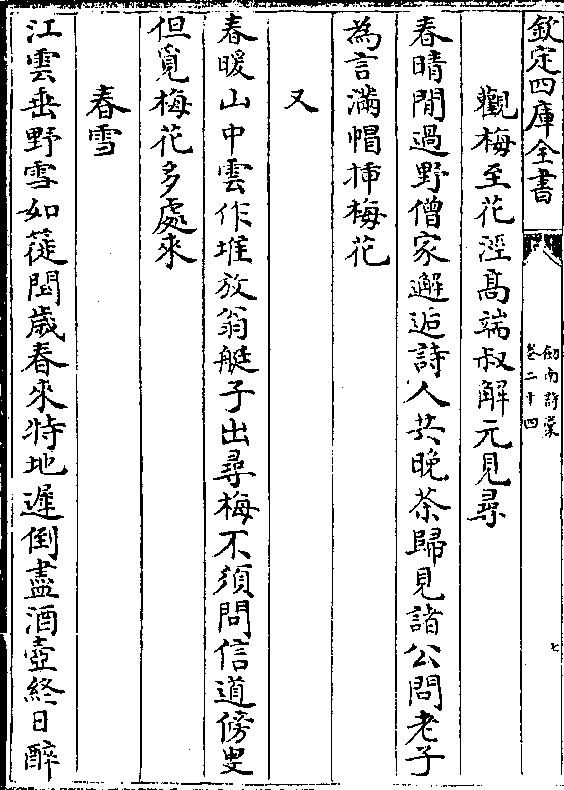 欽定四庫全書
劒南詩稾
卷二十四
七
觀梅至花涇髙端叔解元見尋
春晴閒過野僧家邂逅詩人共晚茶歸見諸公問老子
為言滿帽揷梅花
又
春暖山中雲作堆放翁艇子出尋梅不須問信道傍叟
但覓梅花多處來
春雪
江雲垂野雪如簁閏歲春來特地遲倒盡酒壺終日醉